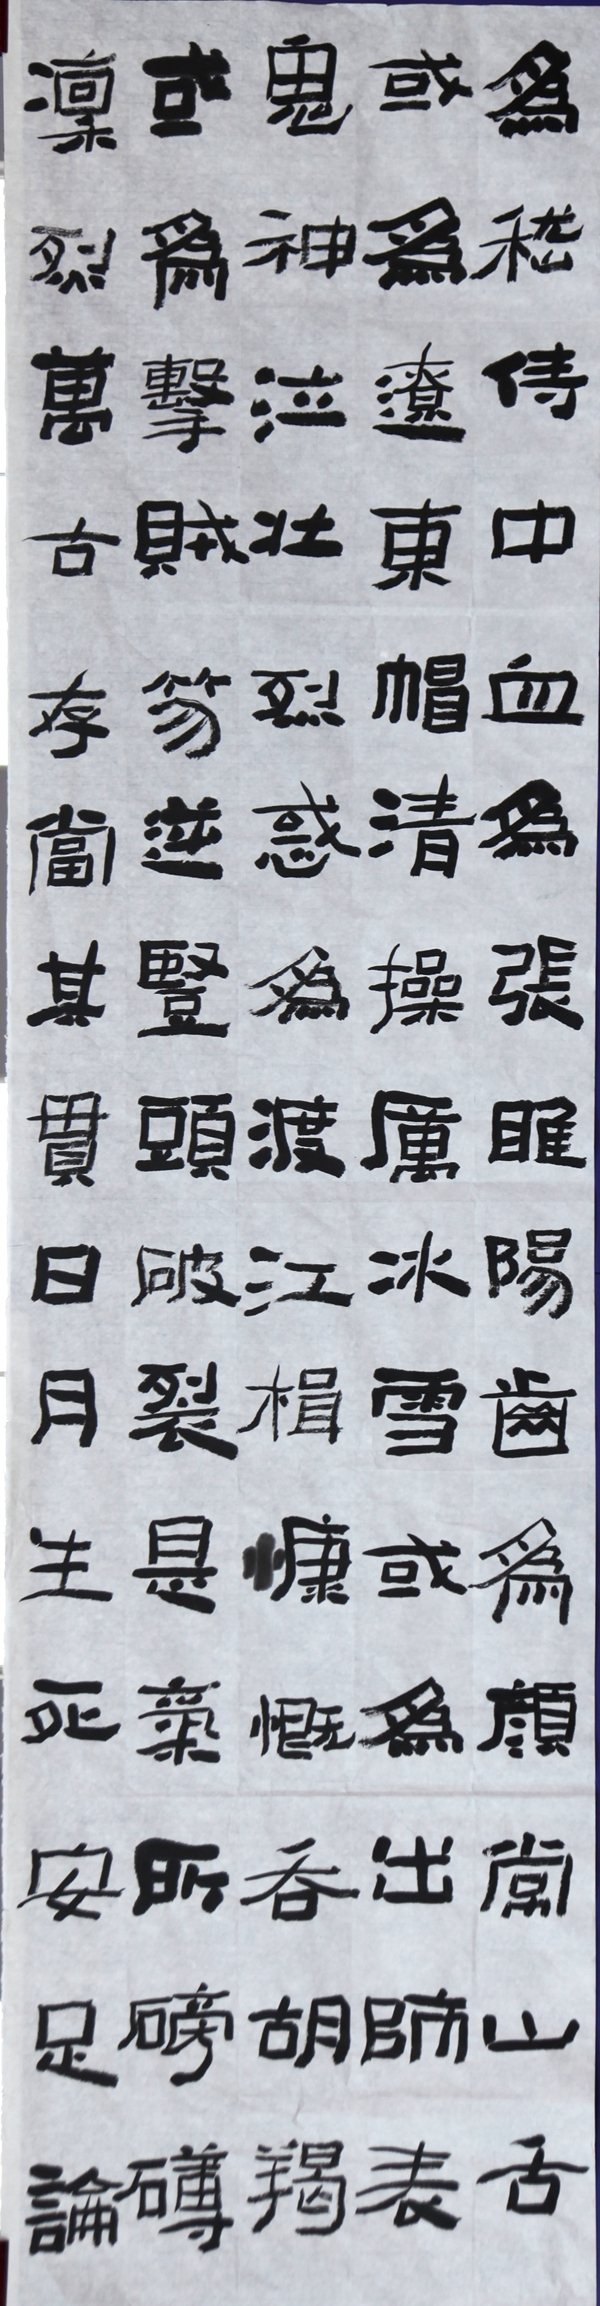 為嵇侍中血為張睢陽齒為顏常山舌
或為遼東帽清操厲冰雪或為出師表
鬼神泣壯烈惑為渡江楫慷慨吞胡羯
或為擊賊笏逆豎頭破裂是氣所磅礴
凜烈萬古存當其貫日月生死安足論